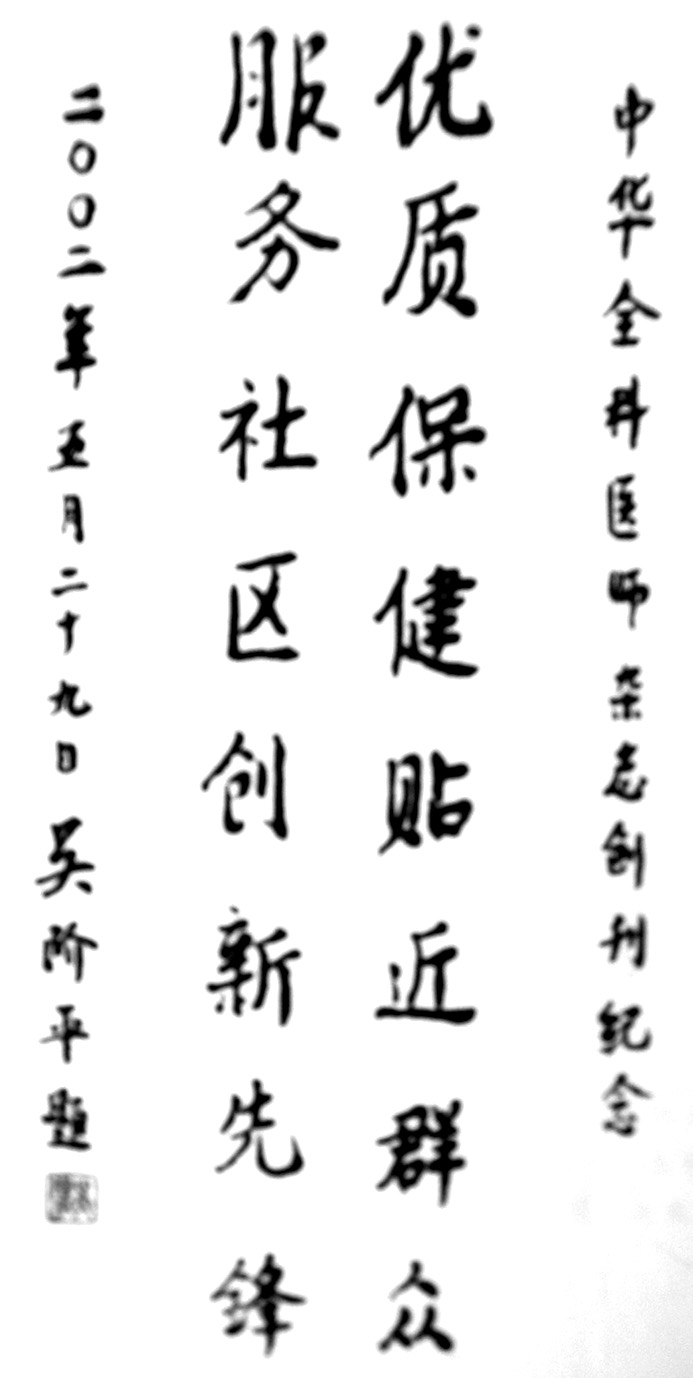 中华全科医师杂志创刊纪念
优质保健贴近群众
服务社区创新先锋
二〇〇二年五月二十九日吴阶平题